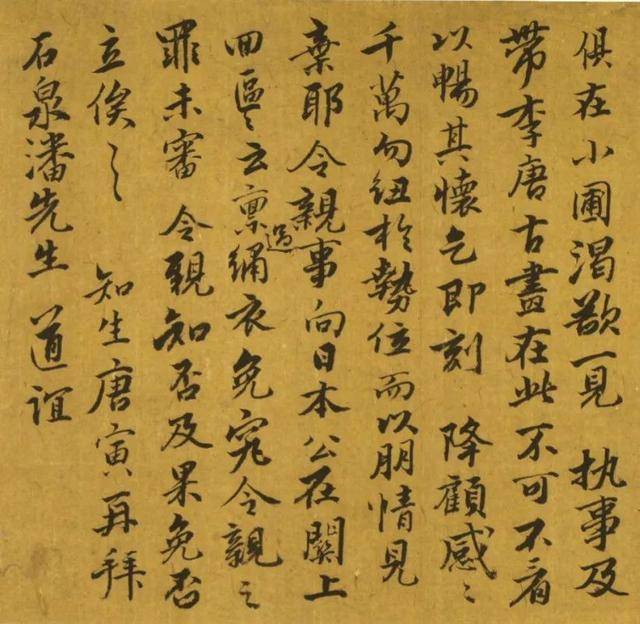 俱在小圃渴欲一見 执事及
帶李唐古畫在此不可不看
以暢其懷乞即刻 降顧感〻
千萬勿紐於勢位而以朋情見
棄耶令親事向日本公在關上
回區〻云禀過綉衣免究令親之
罪未審 令親知否及果免否
立俟〻 知生唐寅再拜
石泉潘先生 道誼